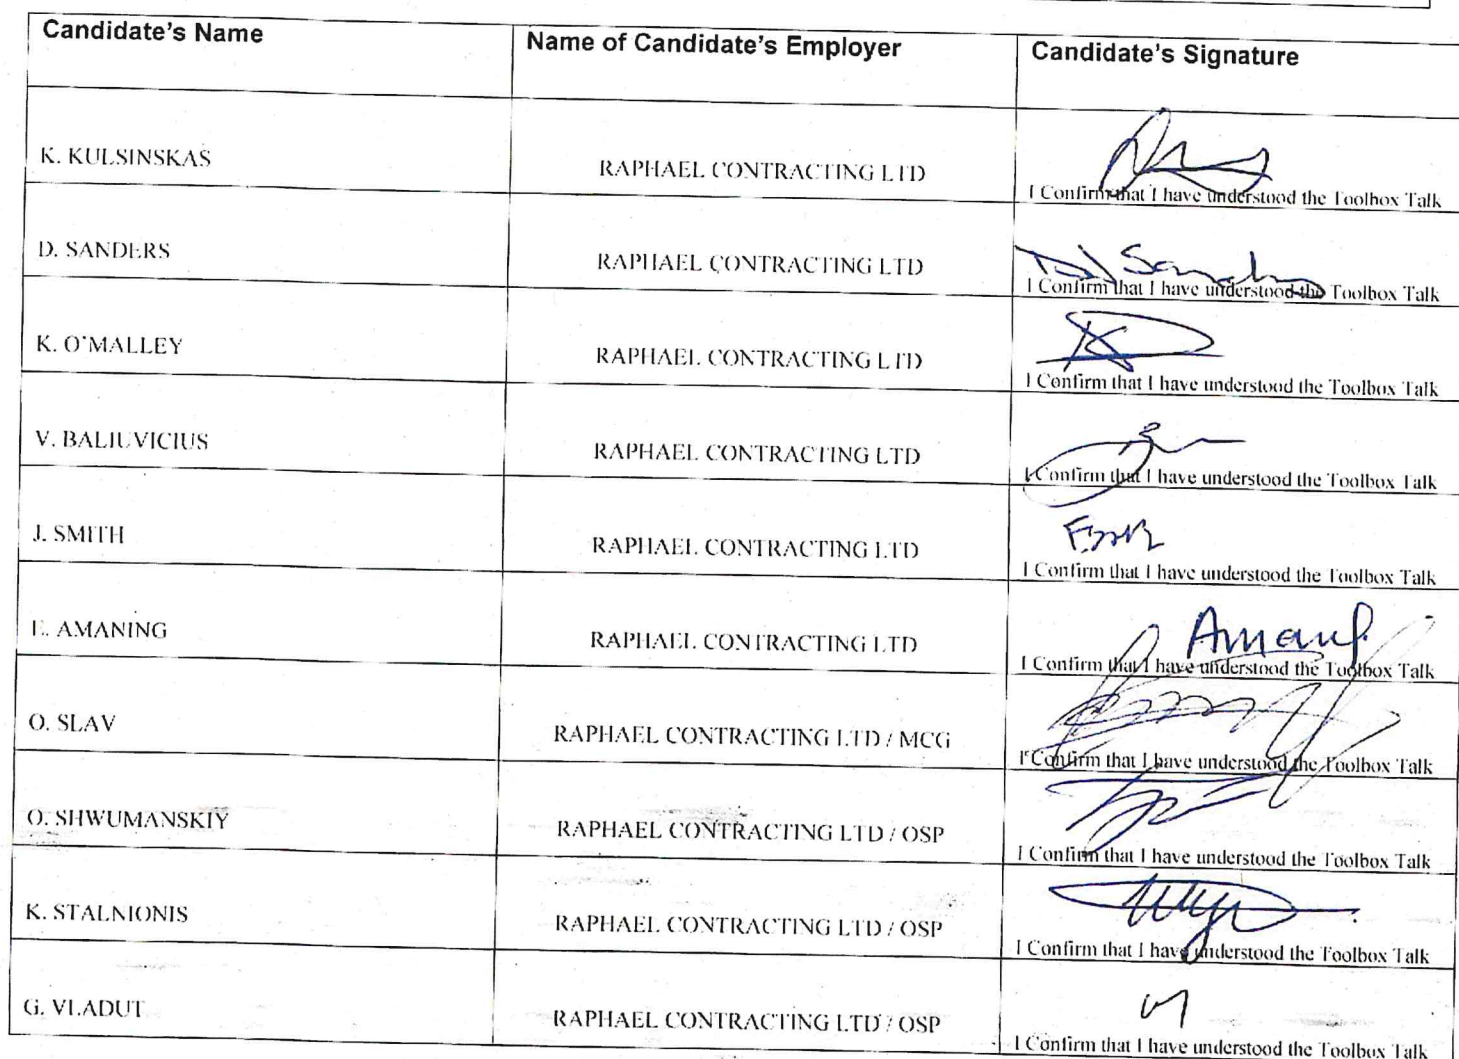 Candidate's Name Name of Candidate's Employer Candidate's Signature
K. KULSINSKAS RAPHAEL CONTRACTING LTD
I Confirm that I have understood the Toolbox Talk
D. SANDERS RAPHAEL CONTRACTING LTD D Sanders
I Confirm that I have understood the Toolbox Talk
K. O'MALLEY RAPHAEL CONTRACTING LTD
I Confirm that I have understood the Toolbox Talk
V. BALIUVICIUS RAPHAEL CONTRACTING LTD
I Confirm that I have understood the Toolbox Talk
J. SMITH RAPHAEL CONTRACTING LTD
I Confirm that I have understood the Toolbox Talk
E. AMANING RAPHAEL CONTRACTING LTD
I Confirm that I have understood the Toolbox Talk
O. SLAV RAPHAEL CONTRACTING LTD / MCG
I Confirm that I have understood the Toolbox Talk
O. SHWUMANSKIY RAPHAEL CONTRACTING LTD / OSP
I Confirm that I have understood the Toolbox Talk
K. STALNIONIS RAPHAEL CONTRACTING LTD / OSP
I Confirm that I have understood the Toolbox Talk
G. VLADUT RAPHAEL CONTRACTING LTD / OSP
I Confirm that I have understood the Toolbox Talk